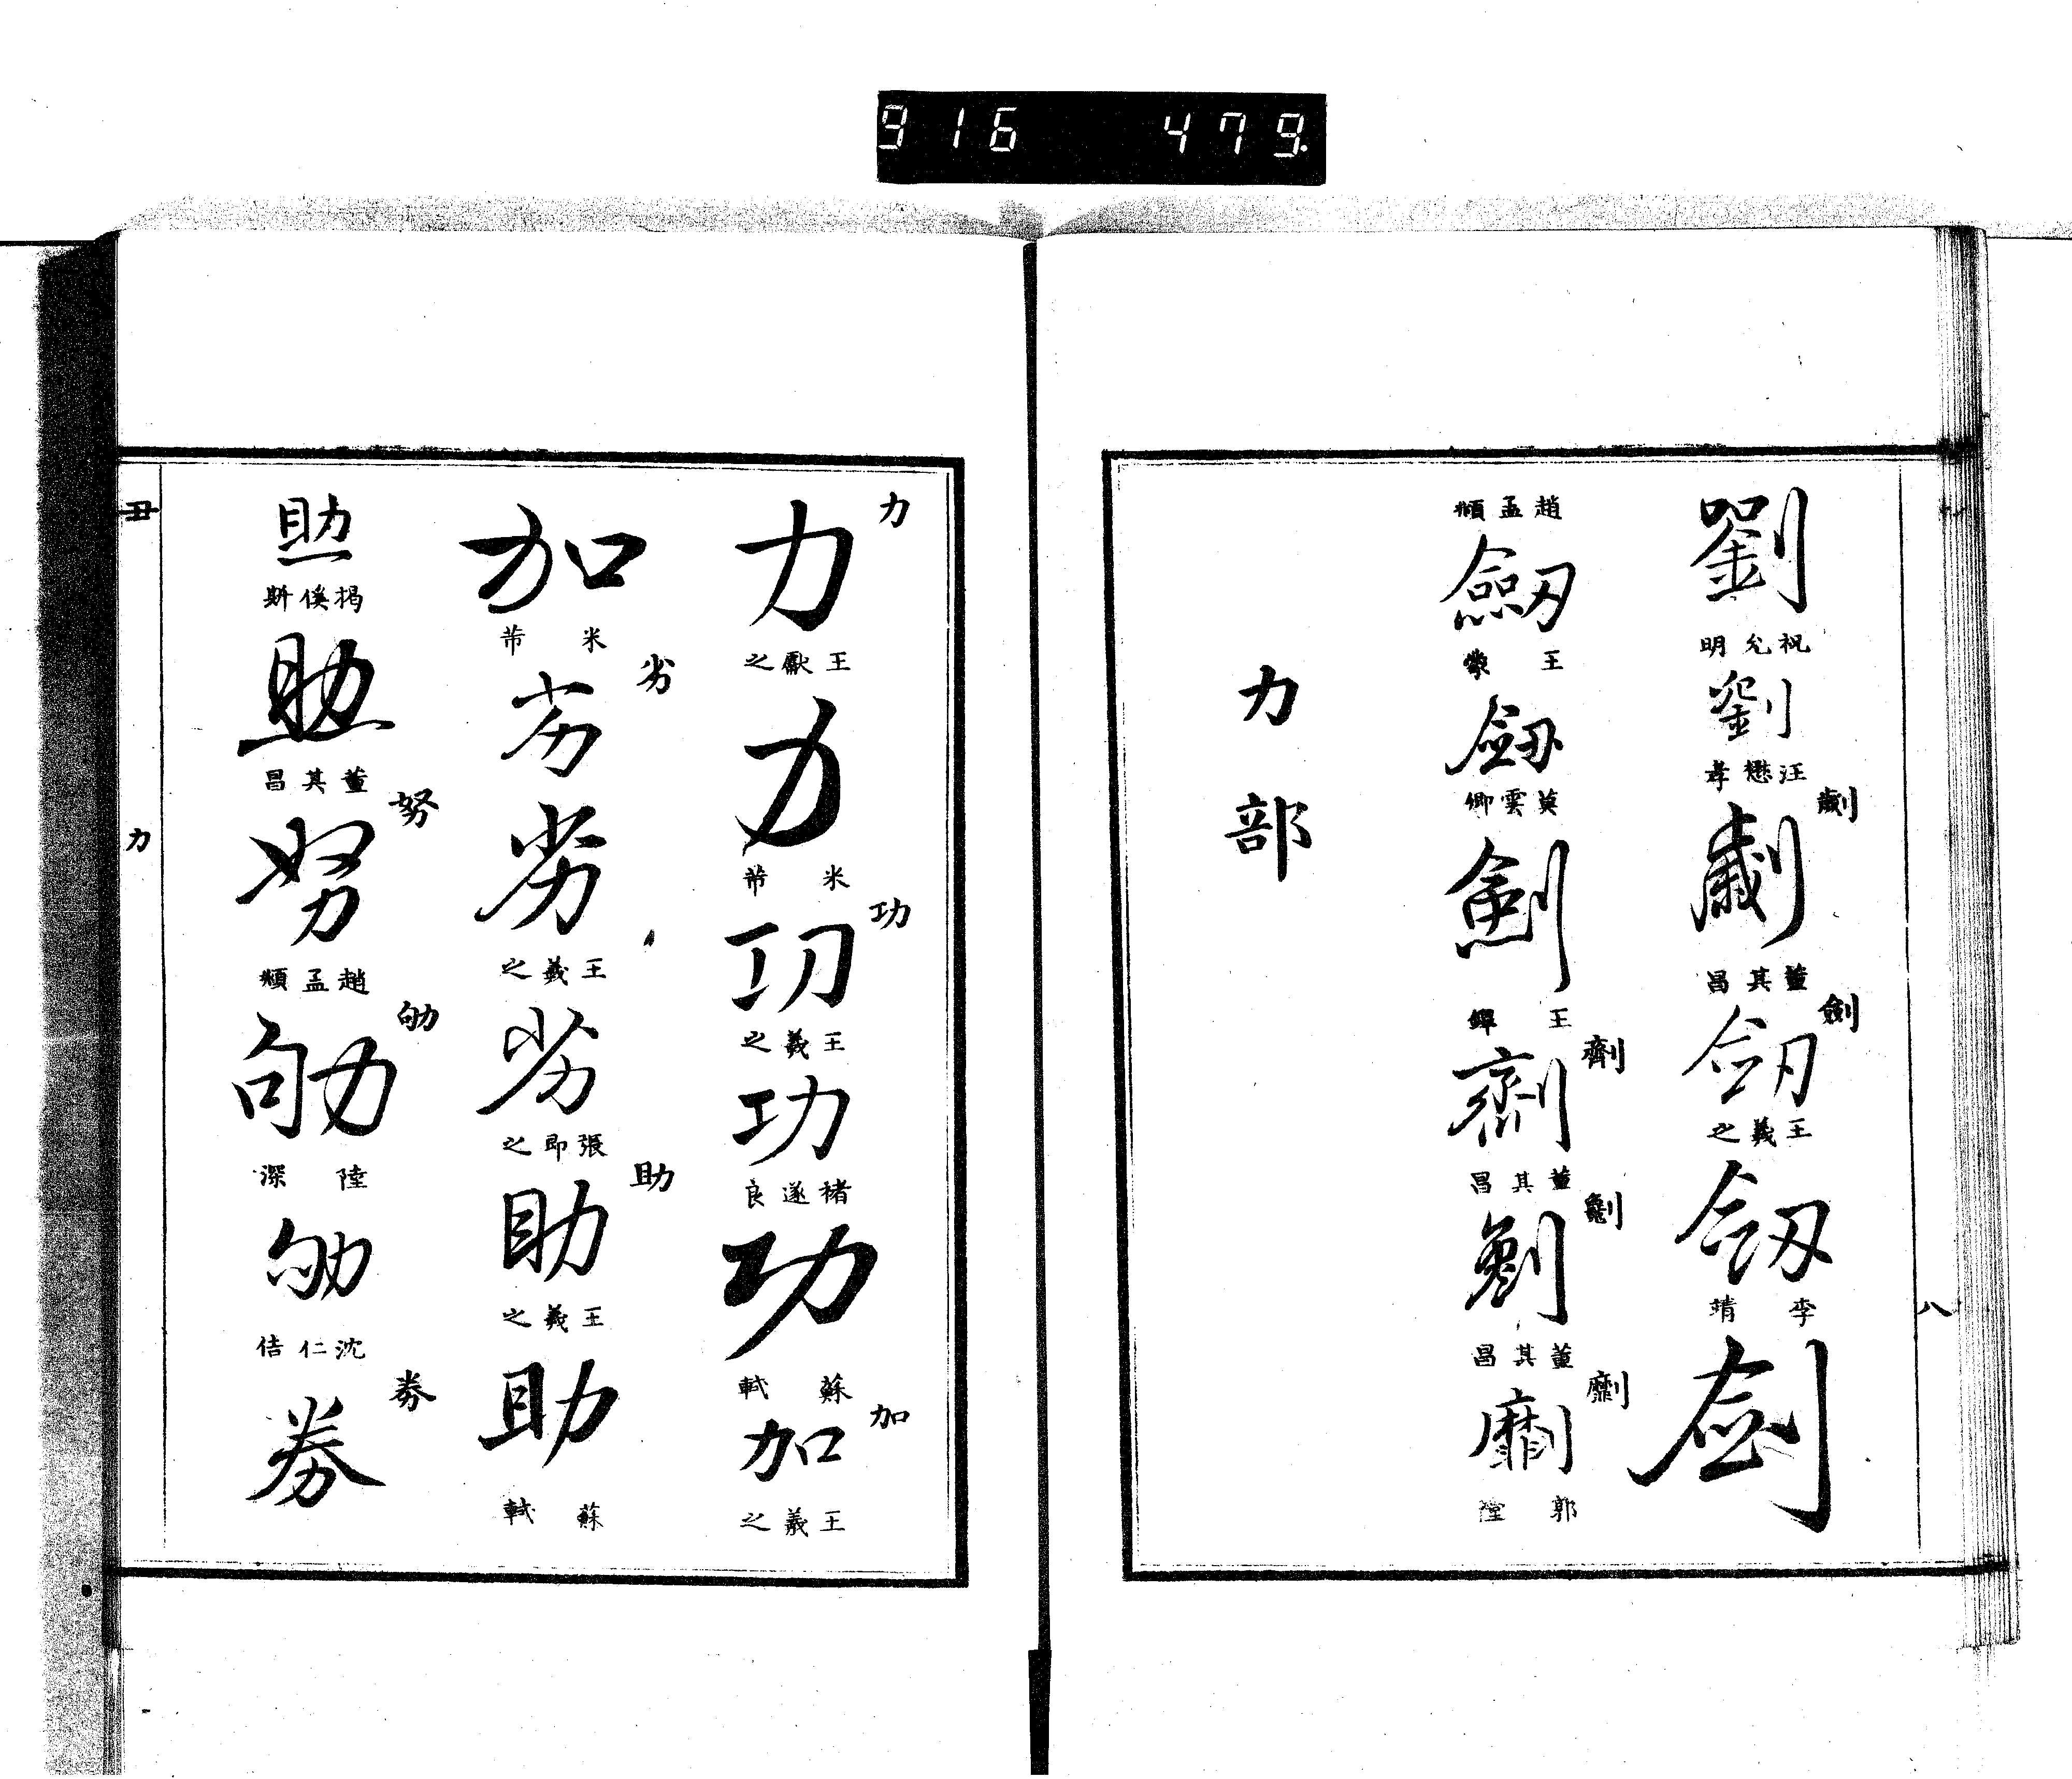 916 479.
八
劉
祝允明
劉
汪懋孝
劌
劌
董其昌
劍
劒
王羲之
劒
李靖
劍
趙孟頫
劒
王蒙
劒
莫雲卿
劍
王鐸
劑
劑
董其昌
劖
劖
董其昌
劘
劘
郭諶
力部
力
力
王獻之
力
米芾
功
功
王羲之
功
褚遂良
功
蘇軾
加
加
王羲之
加
米芾
劣
劣
劣
王羲之
劣
張即之
助
助
王羲之
助
蘇軾
助
揭傒斯
助
董其昌
努
努
趙孟頫
劬
劬
陸深
劬
沈仁佶
劵
劵
丑
力